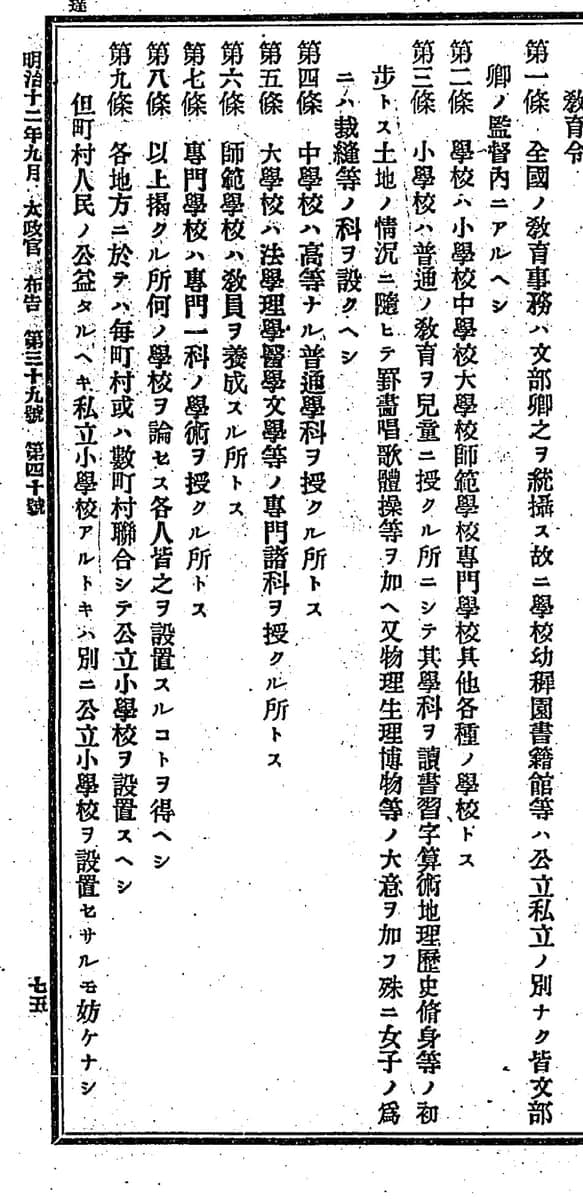 達
敎育令
第一條　全國ノ敎育事務ハ文部卿之ヲ統攝ス故ニ學校幼穉園書籍館等ハ公立私立ノ別ナク皆文部
卿ノ監督內ニアルヘシ
第二條　學校ハ小學校中學校大學校師範學校專門學校其他各種ノ學校トス
第三條　小學校ハ普通ノ敎育ヲ兒童ニ授クル所ニシテ其學科ヲ讀書習字算術地理歷史脩身等ノ初
步トス土地ノ情況ニ隨ヒテ罫畵唱歌體操等ヲ加ヘ又物理生理博物等ノ大意ヲ加フ殊ニ女子ノ爲
ニハ裁縫等ノ科ヲ設クヘシ
第四條　中學校ハ高等ナル普通學科ヲ授クル所トス
第五條　大學校ハ法學理學醫學文學等ノ專門諸科ヲ授クル所トス
第六條　師範學校ハ敎員ヲ養成スル所トス
第七條　專門學校ハ專門一科ノ學術ヲ授クル所トス
第八條　以上揭クル所何ノ學校ヲ論セス各人皆之ヲ設置スルコトヲ得ヘシ
第九條　各地方ニ於テハ每町村或ハ數町村聯合シテ公立小學校ヲ設置スヘシ
但町村人民ノ公益タルヘキ私立小學校アルトキハ別ニ公立小學校ヲ設置セサルモ妨ケナシ
明治十二年九月　太政官　布告　第三十九號　第四十號
七五